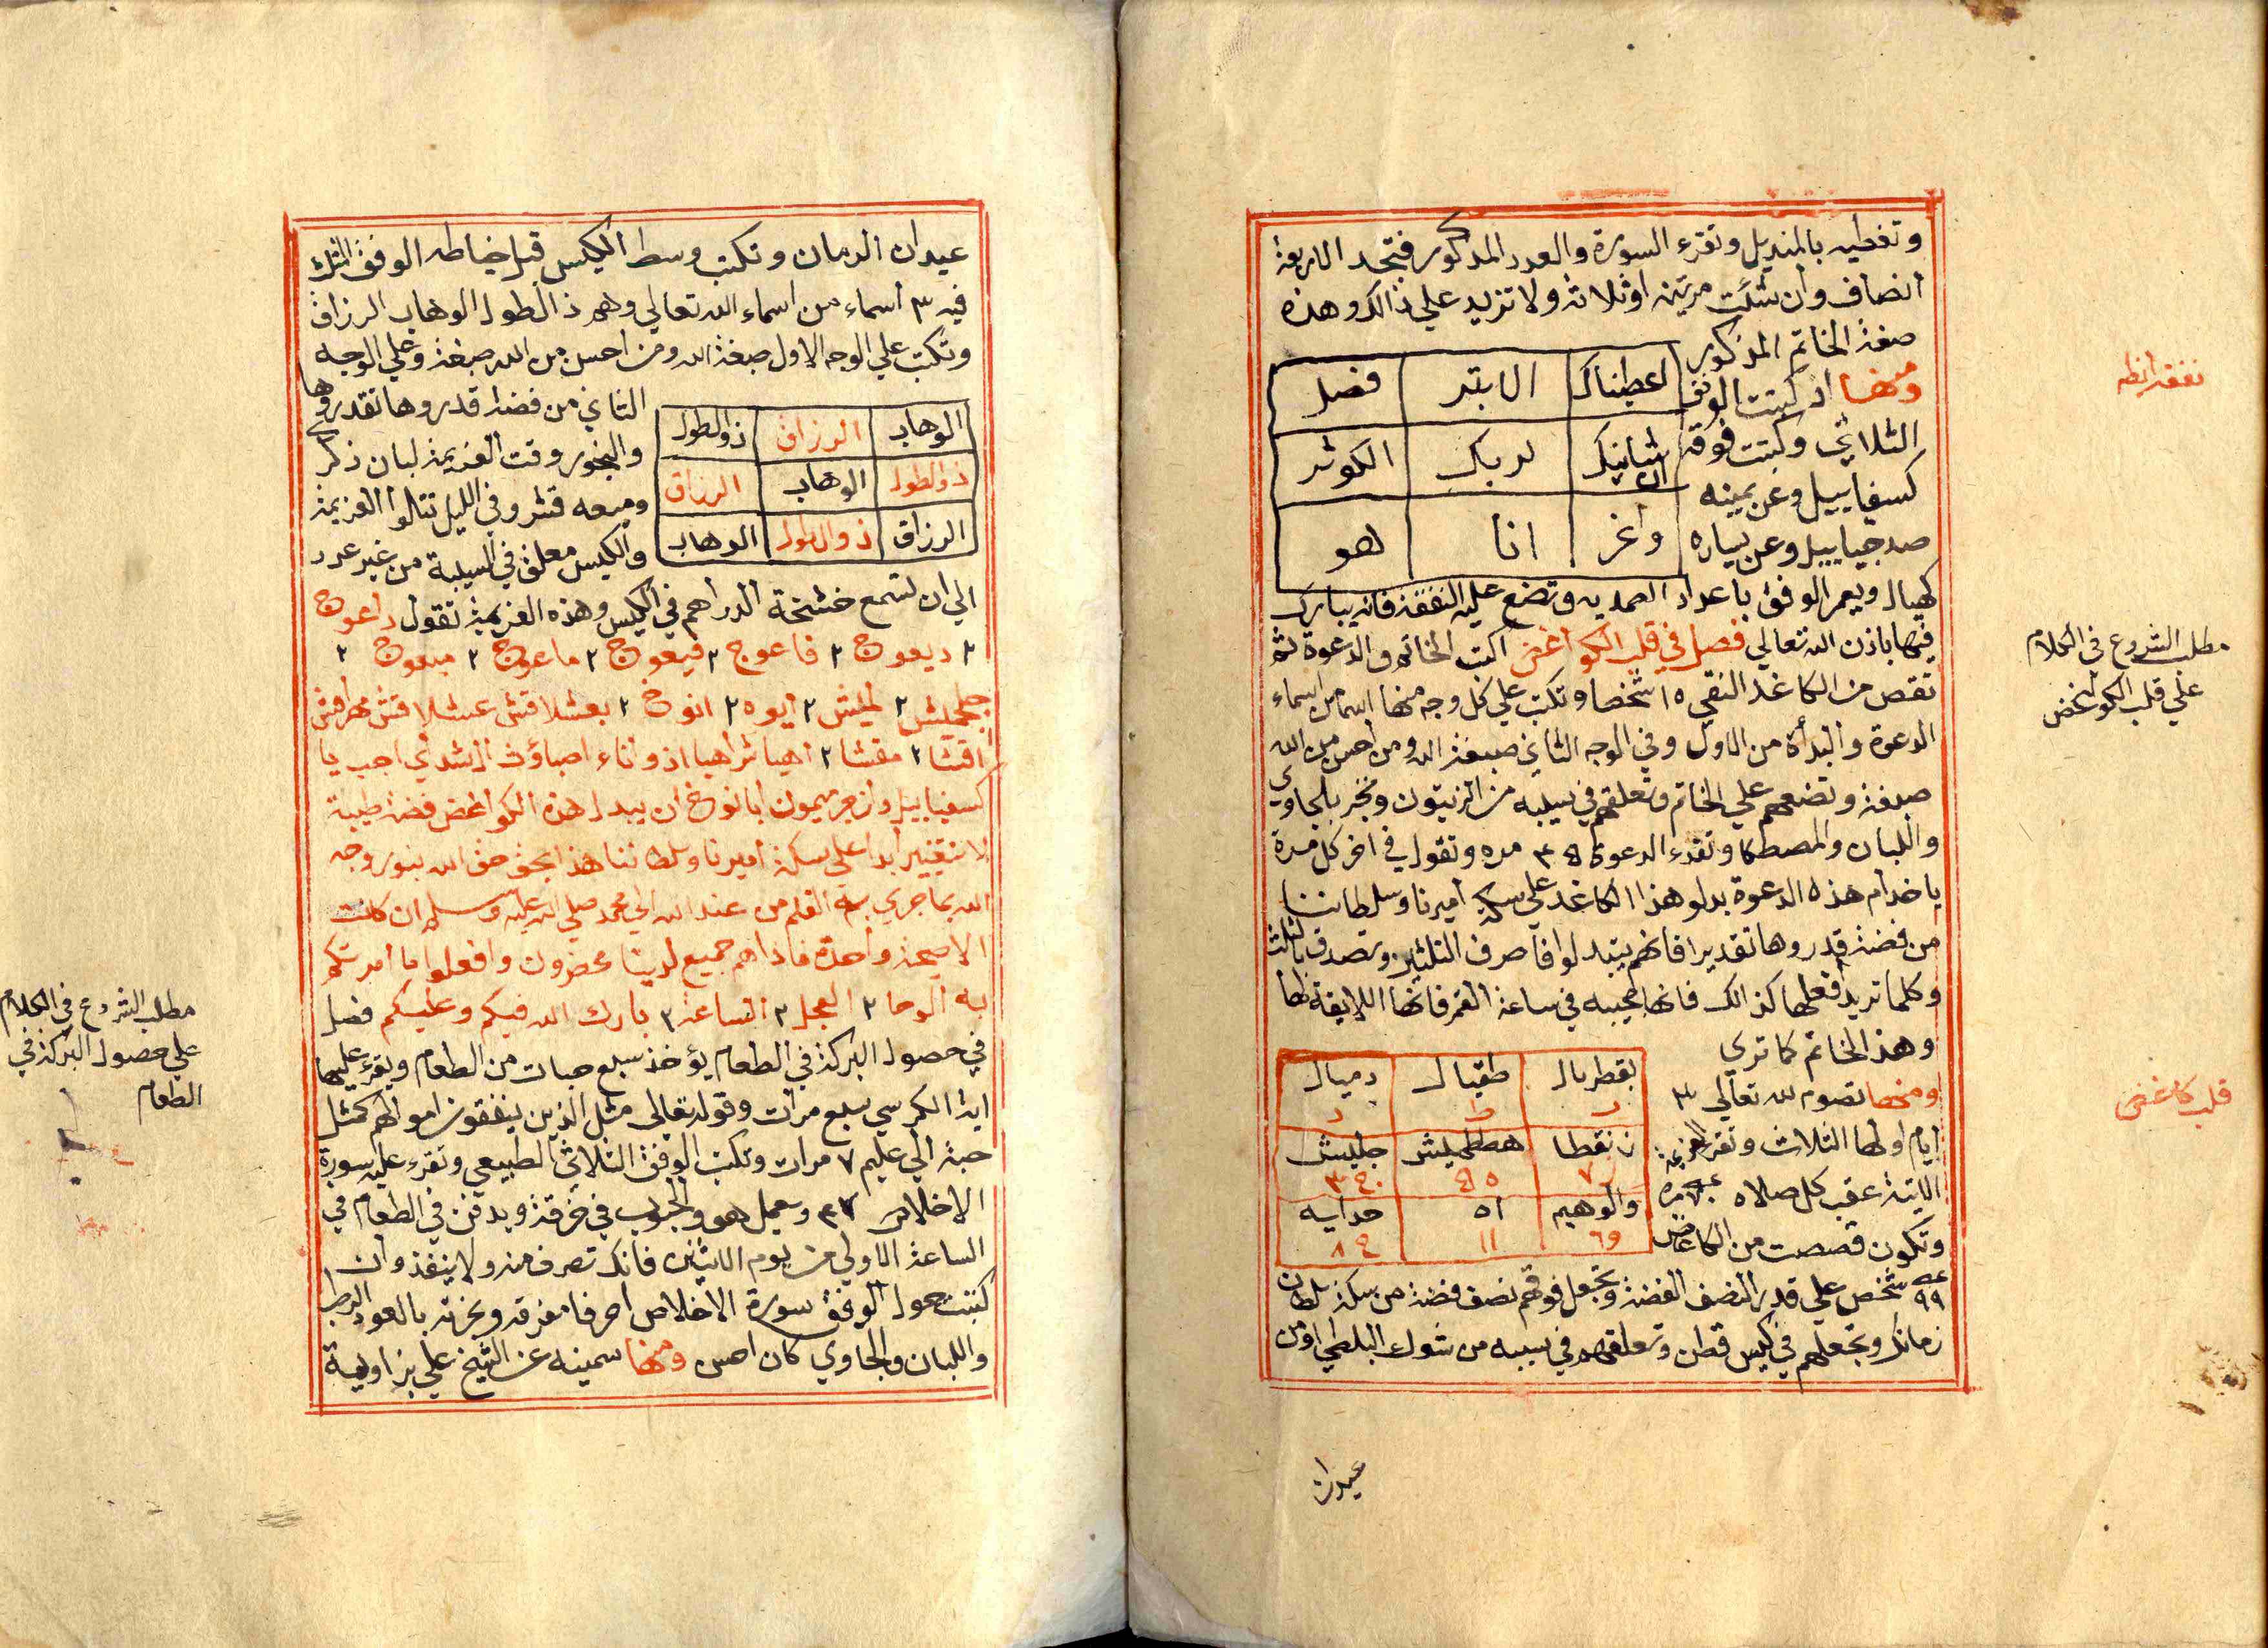 وتغطيه بالمنديل وتقرء السورة والعدد المذكور فتجد الاربعة
انصاف وان شئت مرتين او ثلاثة ولا تزيد علي ذالك وهذه
صفة الخاتم المذكور
ومنها ان كتبت الوفق
الثلاثي وكتبت فوقه
كسفياييل وعن يمينه
صدجياييل وعن يساره
اعطيناك الابتر فصل
شانيك لربك الكوثر
وانحر انا هو
كهيال ويعمر الوفق باعداد الصمديه وتضع عليه النفقة فانه يبارك
فيها باذن الله تعالي فصل في قلب الكواغض اكتب الخاتم والدعوة ثم
تقص من الكاغد النقي ١٥ شخصا وتكتب علي كل وجه منها اسما من اسماء
الدعوة والبدأة من الاول وفي الوجه الثاني صبغة الله ومن احسن من الله
صبغة وتضعهم علي الخاتم وتعلقهم في سيبه من الزيتون وتبخر بالجاوي
واللبان والمصطكا وتقرء الدعوة ٣٤٥ مره وتقول في اخر كل مرة
يا خدام هذه الدعوة بدلو هذا الكاغد علي سكة اميرنا وسلطاننا
من فضة قدروها تقديرا فانهم يتبدلوا فاصرف الثلثين وتصدق بالثلث
وكلما تريد فعلها كذالك فانها عجيبه في ساعة القمر فانها اللايقة لها
وهذ الخاتم كما تري
ومنها تصوم لله تعالي ٣
ايام اولها الثلاث وتقرء العزيمة
الاتية عقب كل صلاه مره
وتكون قصصت من الكاغض
طقيال دميال
هططهليش جليش
حدايه
٩٩ شخص علي قدر النصف الفضة وتجعل فوقهم نصف فضة من سكة سلطان
زمانك وتجعلهم في كيس قطن وتعلقهم في سيبه من شوك البلطي او من
عيدان
نفقه
مطلب الشروع في الكلام
علي قلب الكواغض
قلب كاغض
عيدان الرمان وتكتب وسط الكيس قبل خياطه الوفق المثلث
فيه ٣ اسماء من اسماء الله تعالي وهم ذ الطول الوهاب الرزاق
وتكتب علي الوجه الاول صبغة الله ومن احسن من الله صبغة وعلي الوجه
الثاني من فضة قدروها تقدروها
والبخور وقت العزيمة لبان ذكر
وميعه قشر وفي الليل تتلوا العزيمة
والكيس معلق في السيبة من غير عدد
الوهاب الرزاق ذوالطول
ذوالطول الوهاب الرزاق
الرزاق ذوالطول الوهاب
الي ان تسمع خشخشة الدراهم في الكيس وهذه العزيمة تقول داعوج
٢ ديعوج ٢ فاعوج ٢ فيعوج ٢ ماعوج ٢ ميعوج ٢
لهليش ٢ ايوه ٢ انوخ ٢ بعشلاقش عشلاقش مهراقش
اقشا ٢ مقشا ٢ اهيا شراهيا اذوناء اصباؤث ال شدي اجب يا
كسفياييل وازجر ميمون ابانوخ ان يبدل هذه الكواغض فضة طيبة
لا تتغيير أبدا علي سكة اميرنا وسلطاننا هذا بحق حق الله بنور وجه
الله بما جري به القلم من عند الله الي محمد صلي الله عليه وسلم ان كانت
الا صيحة واحدة فاذاهم جميع لدينا محضرون وافعلوا ما امرتكم
به الوحا ٢ العجل ٢ الساعة ٢ بارك الله فيكم وعليكم فصل
في حصول البركة في الطعام يؤخذ سبع حبات من الطعام ويقرء عليها
اية الكرسي سبع مرات وقوله تعالي مثل الذين ينفقون اموالهم كمثل
حبة الي عليم ٧ مرات وتكتب الوفق الثلاثي الطبيعي وتقرء عليه سورة
الاخلاص ويجعل هو والحبوب في خرقة ويدفن في الطعام في
الساعة الاولي من يوم الاثنين فانك تصرف منه ولا ينفذ وان
كتبت حول الوفق سورة الاخلاص احرفا مفرقه وبخرته بالعود الرطب
واللبان والجاوي كان احسن ومنها سمينه عن الشيخ علي بن
مطلب الشروع في الكلام
علي حصول البركة في
الطعام